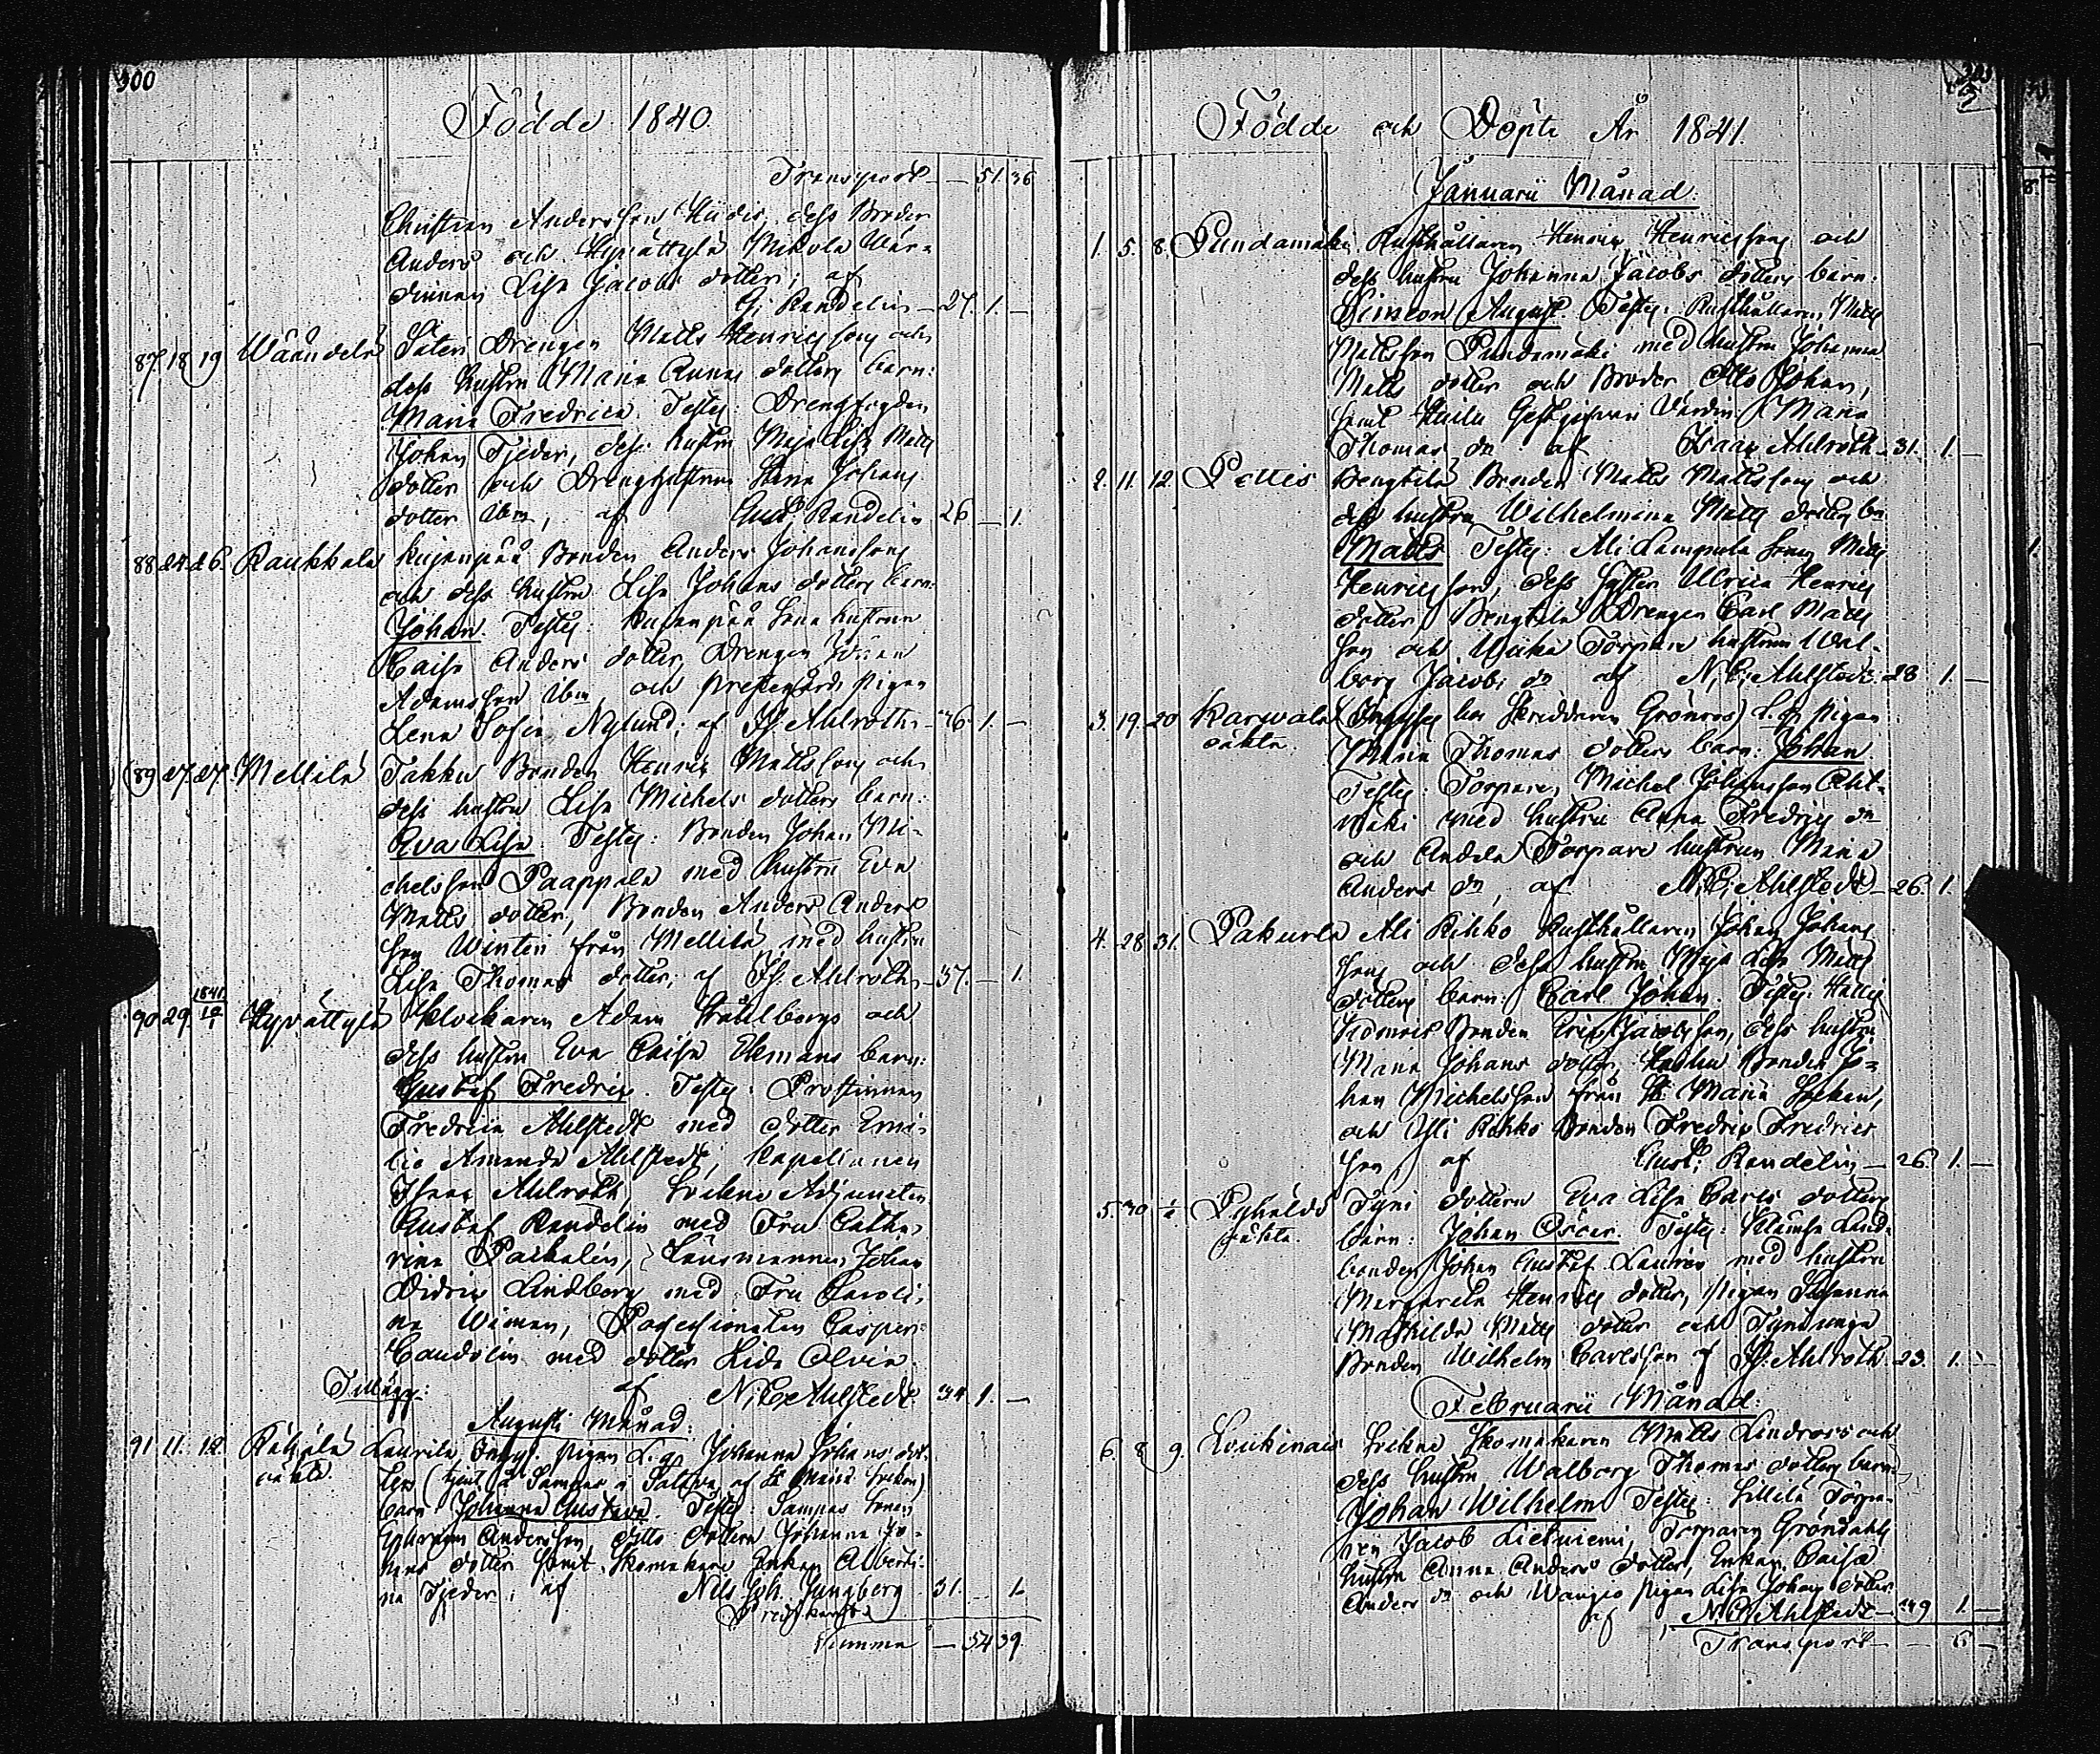 300
Födde 1840.
Transport — 51. 36
Christian Andersson Hiidis, dess Broder
Anders och Hyvättylä Mikola Wär-
dinnan Lisa Jacobs dotter; af
G. Randelin — 27. 1. —
87. 18 19 Wäändelä Säteri Drengen Matts Henricsson och
dess hustru Maria Annas dotters barn:
Maria Fredrica. Testes: Drengfogden
Johan Tjeder, dess hustru Maja Lisa Matts
dotter och Dränghustrun Johans
dotter ibm, af Gust. Randelin 26 — 1.
88. 24. 26. Raukkala Kujanpää Bonden Anders Johansson
och dess hustru Lisa Johans dotters barn:
Johan. Testes: Kujanpää Sone hustrun
Caisa Anders dotter, Drengen Johan
Adamsson ibm, och Prestegårds Pigan
Lena Sofia Nylund; af Is. Ahlroth — 36. 1. —
89. 27. 27. Mellilä Takku Bonden Henric Mattsson och
dess hustru Lisa Michels dotters barn:
Eva Lisa. Testes: Bonden Johan Mi-
chelsson Paappala med hustru Eva
Matts dotter, Bonden Anders Anders
son Winteri från Mellilä med hustru
Lisa Thomas dotter; af Is. Ahlroth — 37. — 1.
1841
90. 29. 12/1 Hyvättylä Klockaren Adam Ståhlberg och
dess hustru Eva Caisa Ekmans barn:
Gustaf Fredric. Testes: Prostinnan
Fredrica Ahlstedt med dotter Emi-
lie Amanda Ahlstedt, Kapellanen
Isaac Ahlroth, Sockne Adjuncten
Gustaf Randelin med Fru Catha-
rina Paihalin, Länsmannen Johan
Didric Lindberg med Fru Caroli-
na Wiman, Possessionaten Casper
Candolin med dotter Lida Olivia.
af N. C. Ahlstedt. 34. 1. —
Tillägg:
Augusti Månad:
91. 11. 12. Rähälä Laurila Inhys. pigan L. q. Johanna Johans dot-
oäkta. ters (tjent å Samnas i Saltvik af S:t Mariä Socken)
barn Johanna Gustava. Testes: Samnas Sonen
Ephraim Andersson, ditto dottern Johanna Jo-
hans dotter samt Skomakare Enkan Alberti-
na Tjeder; af Nils Joh. Ljungberg 31. 1.
Summa — 54 39.
Födde och Döpte År 1841.
Januarii Månad.
1. 5. 8. Pundamäki Rusthållaren Henric Henricsson och
dess hustru Johanna Jacobs dotters barn:
Simeon August. Testes: Rusthållaren Matts
Mattsson Pundamäki med hustru Johanna
Matts dotter och Broder Otto Johan,
samt Gestgifvari Värdin Maria
Thomas dr af Isaac Ahlroth — 31. 1. —
2. 11. 12. Pettis Bengtilä Bonden Matts Mattsson och
dess hustru Wilhelmina Matts dotters bn
Matts. Testes: Ali Lampula Sonen Matts
Henricsson, dess Syster Ulrica Henrics
dotter, Bengtilä Drengen Carl Matts
son och Torpare hustrun Wal-
borg Jacobs dr af N. C. Ahlstedt — 28 1. —
3. 19. 20 Karwala (Inhyses hos Skräddaren Grönroos) L. q. pigan
oäkta. Maria Thomas dotters barn: Johan
Testes: Torparen Michel Johansson Aht-
mäki med hustru Anna Fredrics dr
och Andela Torpare hustrun Maria
Anders dr, af N. C. Ahlstedt — 26. 1.
4. 28. 31. Pakurla Ali Rihko Rusthållaren Johan Johans
son och dess hustru Maja Lisa Matts
dotters barn: Carl Johan. Testes: Hallis
Bonden Eric Jacobsson, dess hustru
Maria Johans dotter, Bonden Jo-
han Michelsson från S:t Mariä Socken,
och Yli Rihko Bonden Fredric Fredrics
son, af Gust. Randelin — 26. 1. —
5. 30 1/2 Pyhäldö Tyni dottern Eva Lisa Carls dotters
oäkta. barn: Johan Oscar. Testes: Land-
bonden Johan Gustaf Laurén med hustru
Margareta Henrics dotter, Pigan Johanna
Mathilda Matts dotter och Tyni unga
Bonden Wilhelm Carlsson af Is. Ahlroth 23. 1. —
Februarii Månad:
6. 8. 9. Loukinais Sockne Skomakaren Matts Lindroos och
dess hustru Walborg Thomas dotters barn:
Johan Wilhelm Testes: Lillilä Torpa-
ren Jacob Lietniemi, Torparen Gröndahls
hustru Anna Anders dotter, Enkan Caisa
Anders dr och Wangio pigan Lisa Johans dotter
af N. C. Ahlstedt — 39 1. —
Transport — — 6 —